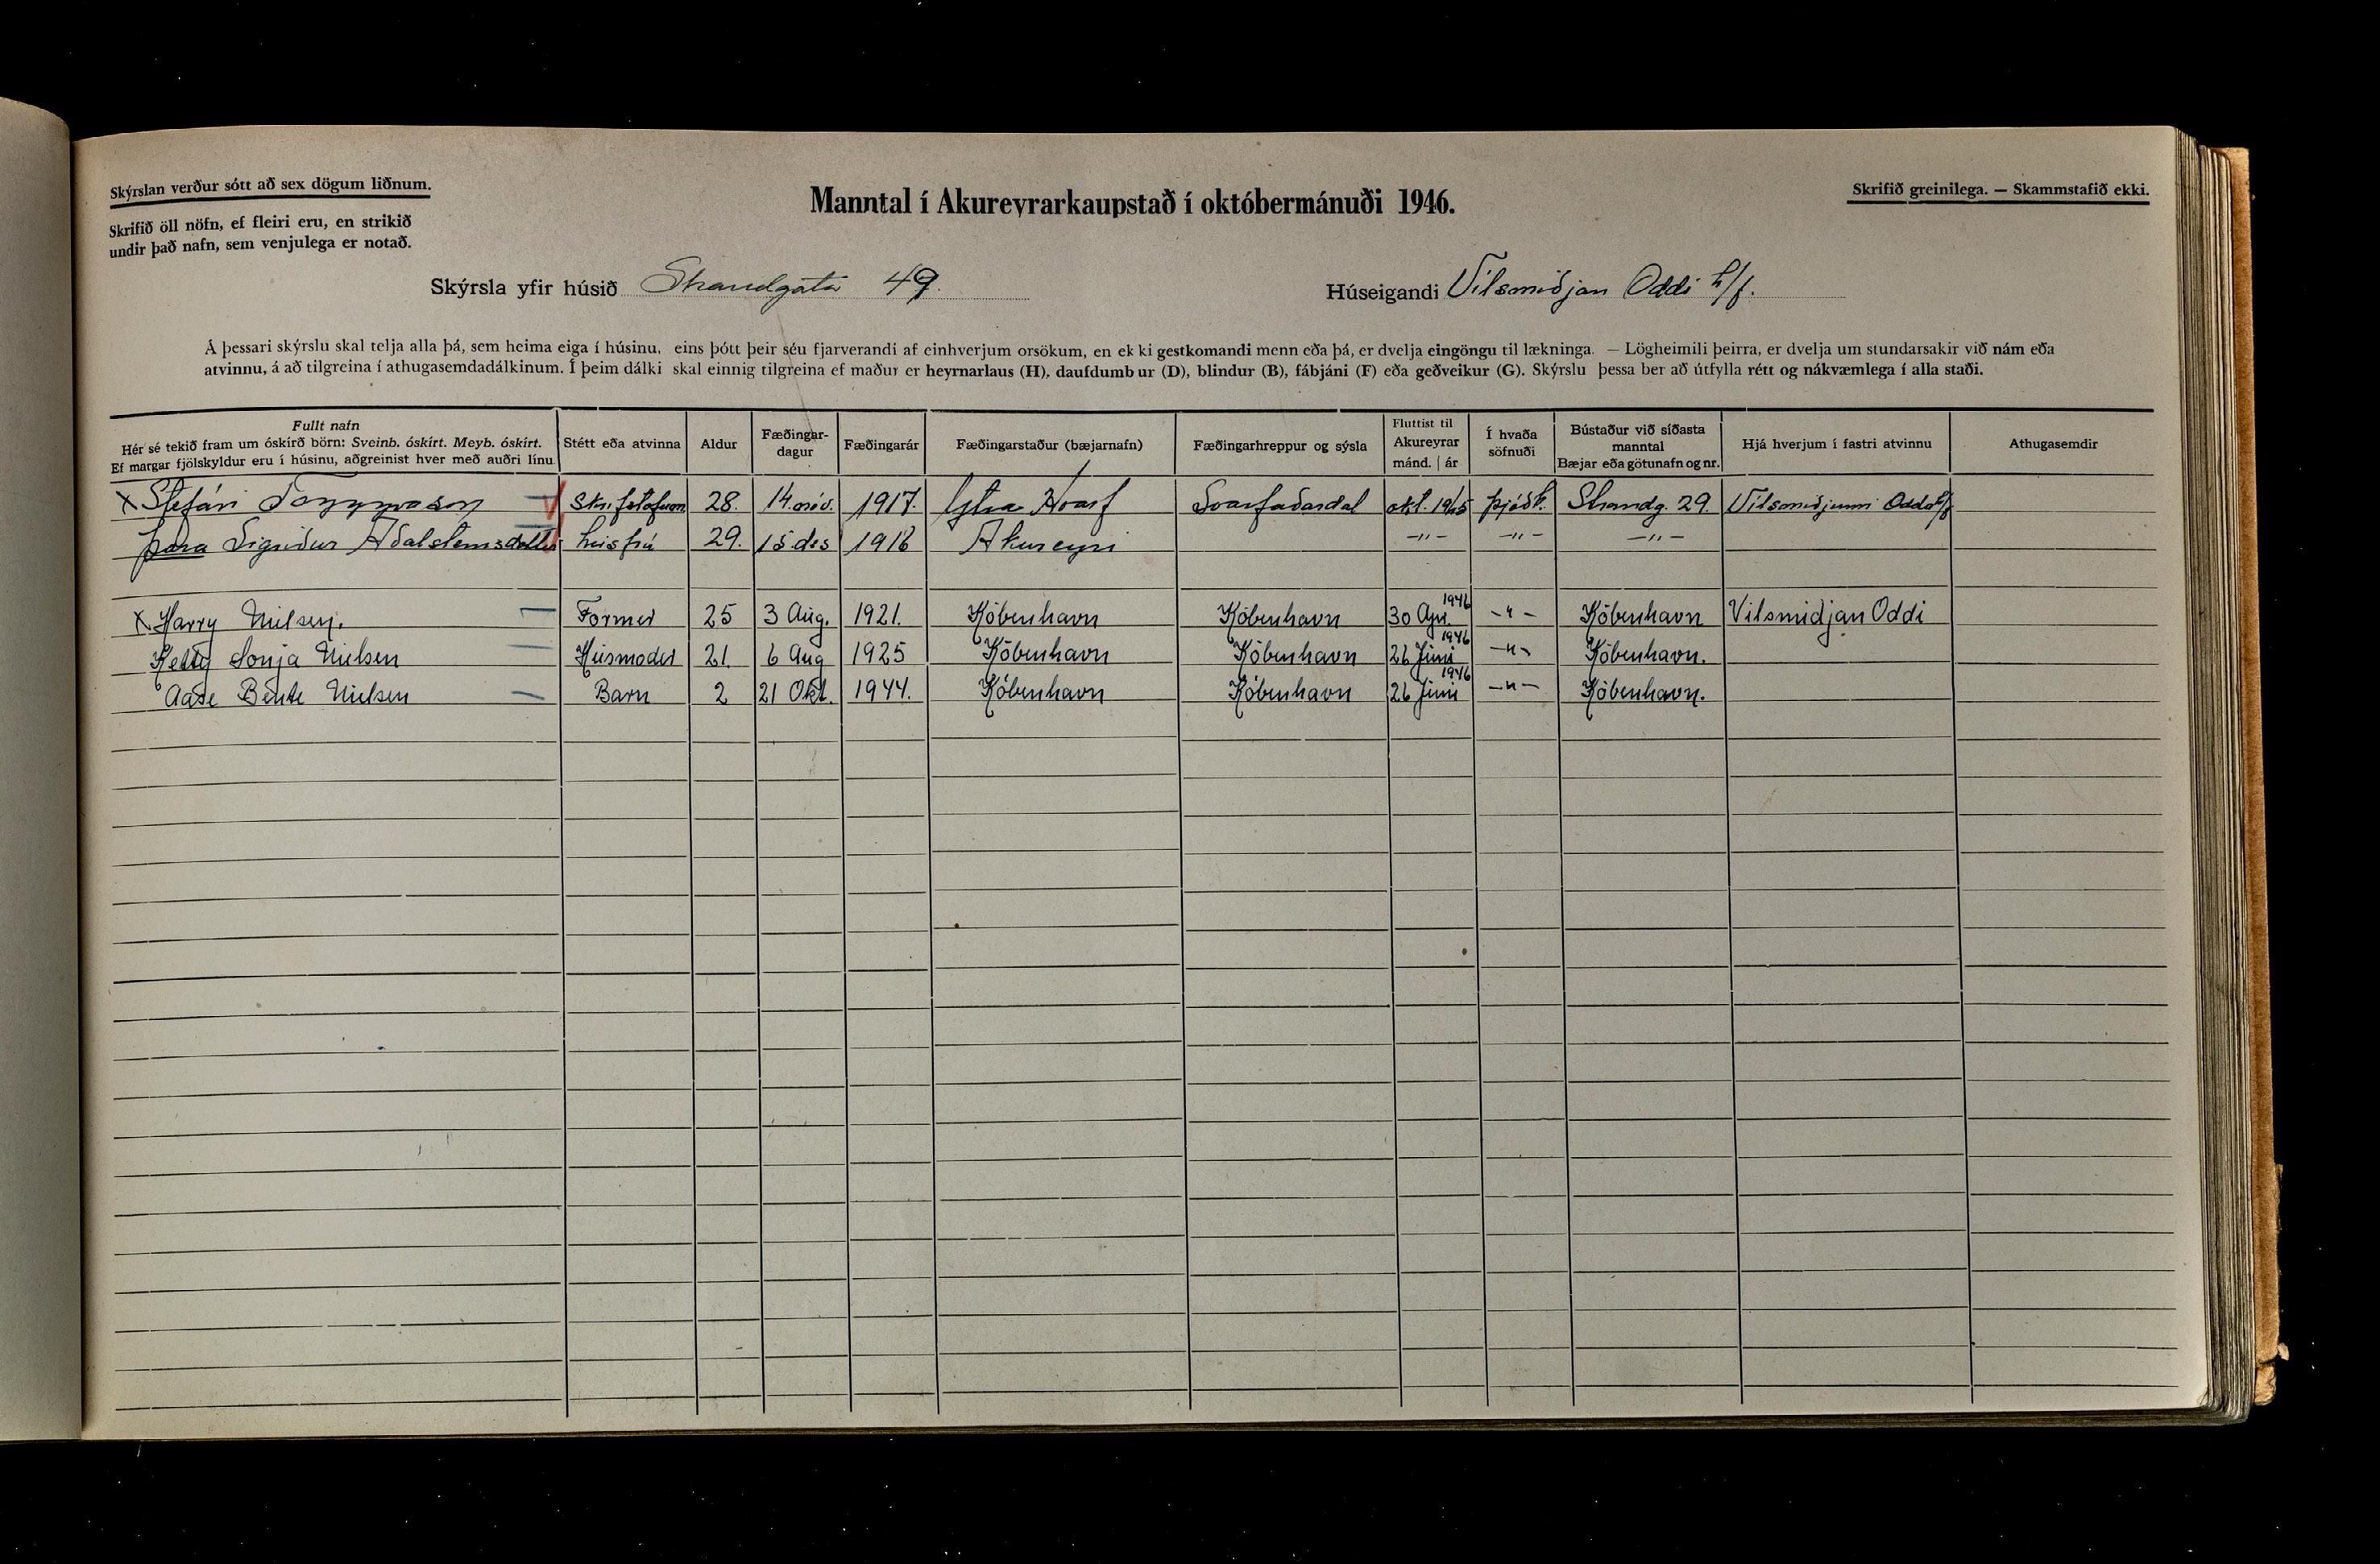 Skýrslan verður sótt að sex dögum liðnum.
Skrifið öll nöfn, ef fleiri eru, en strikið
undir það nafn, sem venjulega er notað.
Manntal í Akureyrarkaupstað í októbermánuði 1946.
Skrifið greinilega. — Skammstafið ekki.
Skýrsla yfir húsið Strandgata 49.
Húseigandi Vélsmiðjan Oddi h/f.
Á þessari skýrslu skal telja alla þá, sem heima eiga í húsinu, eins þótt þeir séu fjarverandi af einhverjum orsökum, en ekki gestkomandi menn eða þá, er dvelja eingöngu til lækninga. — Lögheimili þeirra, er dvelja um stundarsakir við nám eða
atvinnu, á að tilgreina í athugasemdadálkinum. Í þeim dálki skal einnig tilgreina ef maður er heyrnarlaus (H), daufdumbur (D), blindur (B), fábjáni (F) eða geðveikur (G). Skýrslu þessa ber að útfylla rétt og nákvæmlega í alla staði.
Fullt nafn
Hér sé tekið fram um óskírð börn: Sveinb. óskírt. Meyb. óskírt.
Ef margar fjölskyldur eru í húsinu, aðgreinist hver með auðri línu.
Stétt eða atvinna
Aldur
Fæðingar-
dagur
Fæðingarár
Fæðingarstaður (bæjarnafn)
Fæðingarhreppur og sýsla
Fluttist til
Akureyrar
mánd. | ár
Í hvaða
söfnuði
Bústaður við síðasta
manntal
Bæjar eða götunafn og nr.
Hjá hverjum í fastri atvinnu
Athugasemdir
x Stefán 28. 14. nóv. 1917. Ytra Hvarf Svarfaðardal okt. 1945 þjóðk. Strandg. 29. Vélsmiðjunni Odda h/f
Þóra Sigríður Aðalsteinsdóttir húsfrú 29. 15 des 1916 Akureyri —"— —"— —"—
x Harry Nielsen. Former 25 3 Aug. 1921. Köbenhavn Köbenhavn 30 Apr. 1946 —"— Köbenhavn Vilsmidjan Oddi
Ketty Sonja Nielsen Húsmoder 21. 6 Aug 1925 Köbenhavn Köbenhavn 26 Júni 1946 —"— Köbenhavn.
Aase Bente Nielsen Barn 2 21 Okt. 1944. Köbenhavn Köbenhavn 26 Júni 1946 —"— Köbenhavn.